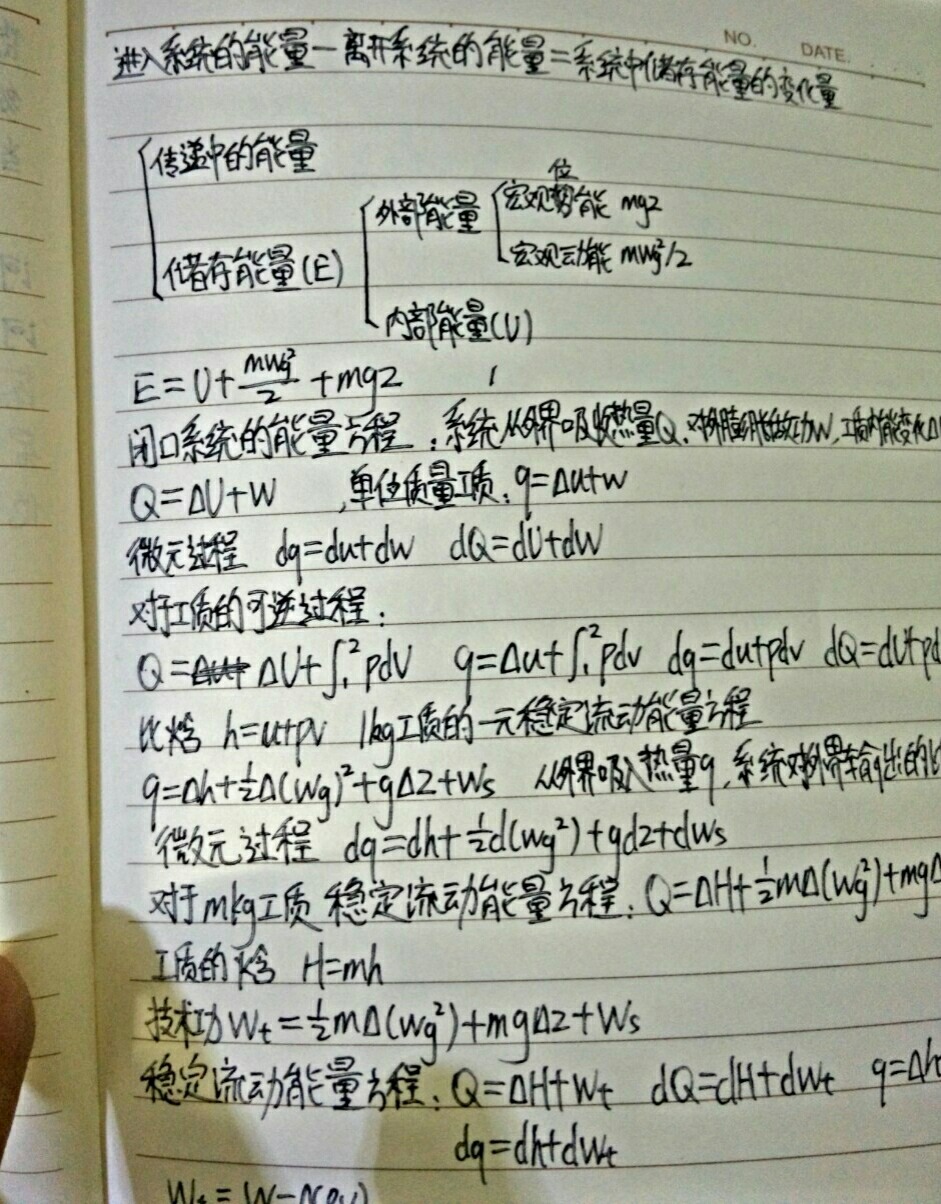 NO. DATE.
进入系统的能量-离开系统的能量=系统中储存能量的变化量
传递中的能量
位
外部能量 宏观势能 mgz
储存能量(E) 宏观动能 mwg²/2
内部能量(U)
E=U+mwg²/2+mgz
闭口系统的能量方程:系统从外界吸收热量Q、对外膨胀做功W,工质内能变化Δ
Q=ΔU+W ,单位质量工质:q=Δu+w
微元过程 dq=du+dw dQ=dU+dW
对于工质的可逆过程:
Q=ΔU+∫₁²pdV q=Δu+∫₁²pdv dq=du+pdv dQ=dU+pd
比焓 h=u+pv 1kg工质的一元稳定流动能量方程
q=Δh+½Δ(wg)²+gΔz+ws 从外界吸入热量q,系统对外界输出的
微元过程 dq=dh+½d(wg²)+gdz+dws
对于mkg工质 稳定流动能量方程:Q=ΔH+½mΔ(wg²)+mgΔ
工质的焓 H=mh
技术功Wt=½mΔ(wg²)+mgΔz+Ws
稳定流动能量方程:Q=ΔH+Wt dQ=dH+dWt q=Δh
dq=dh+dwt
Wt=W-Δ(pv)